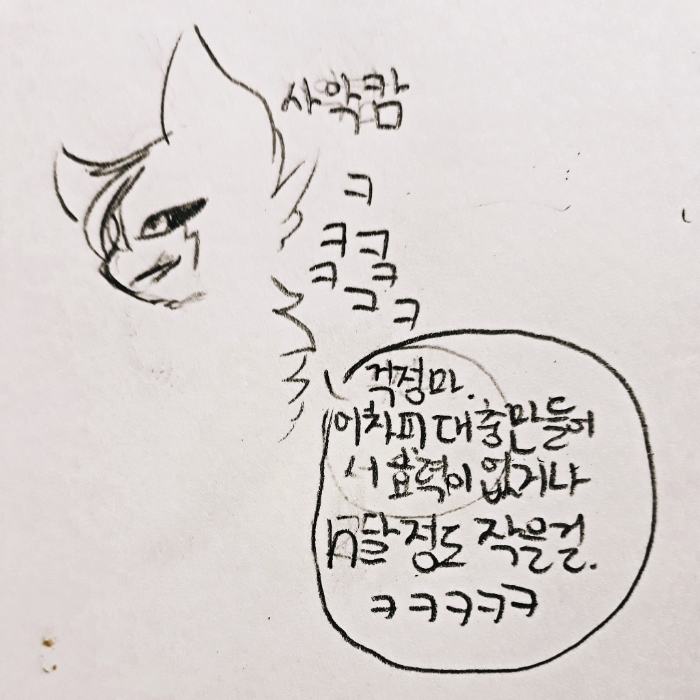 사악캄
ㅋ
ㅋㅋ
ㅋㅋ
ㅋㅋ
걱정마.
어차피 대충만들어
서 효력이 없거나
n달 정도 작을걸.
ㅋㅋㅋㅋㅋ